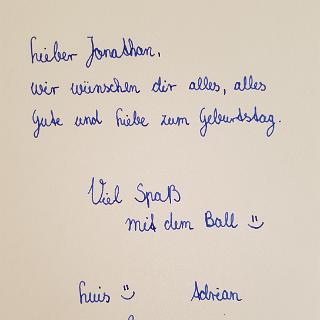 Lieber Jonathan,
wir wünschen dir alles, alles
Gute und Liebe zum Geburtstag.
Viel Spaß
mit dem Ball ü
Luis ü Adrian